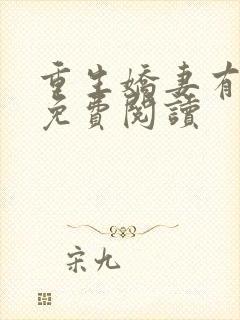 重生嬌妻有
免費閱讀
宋九